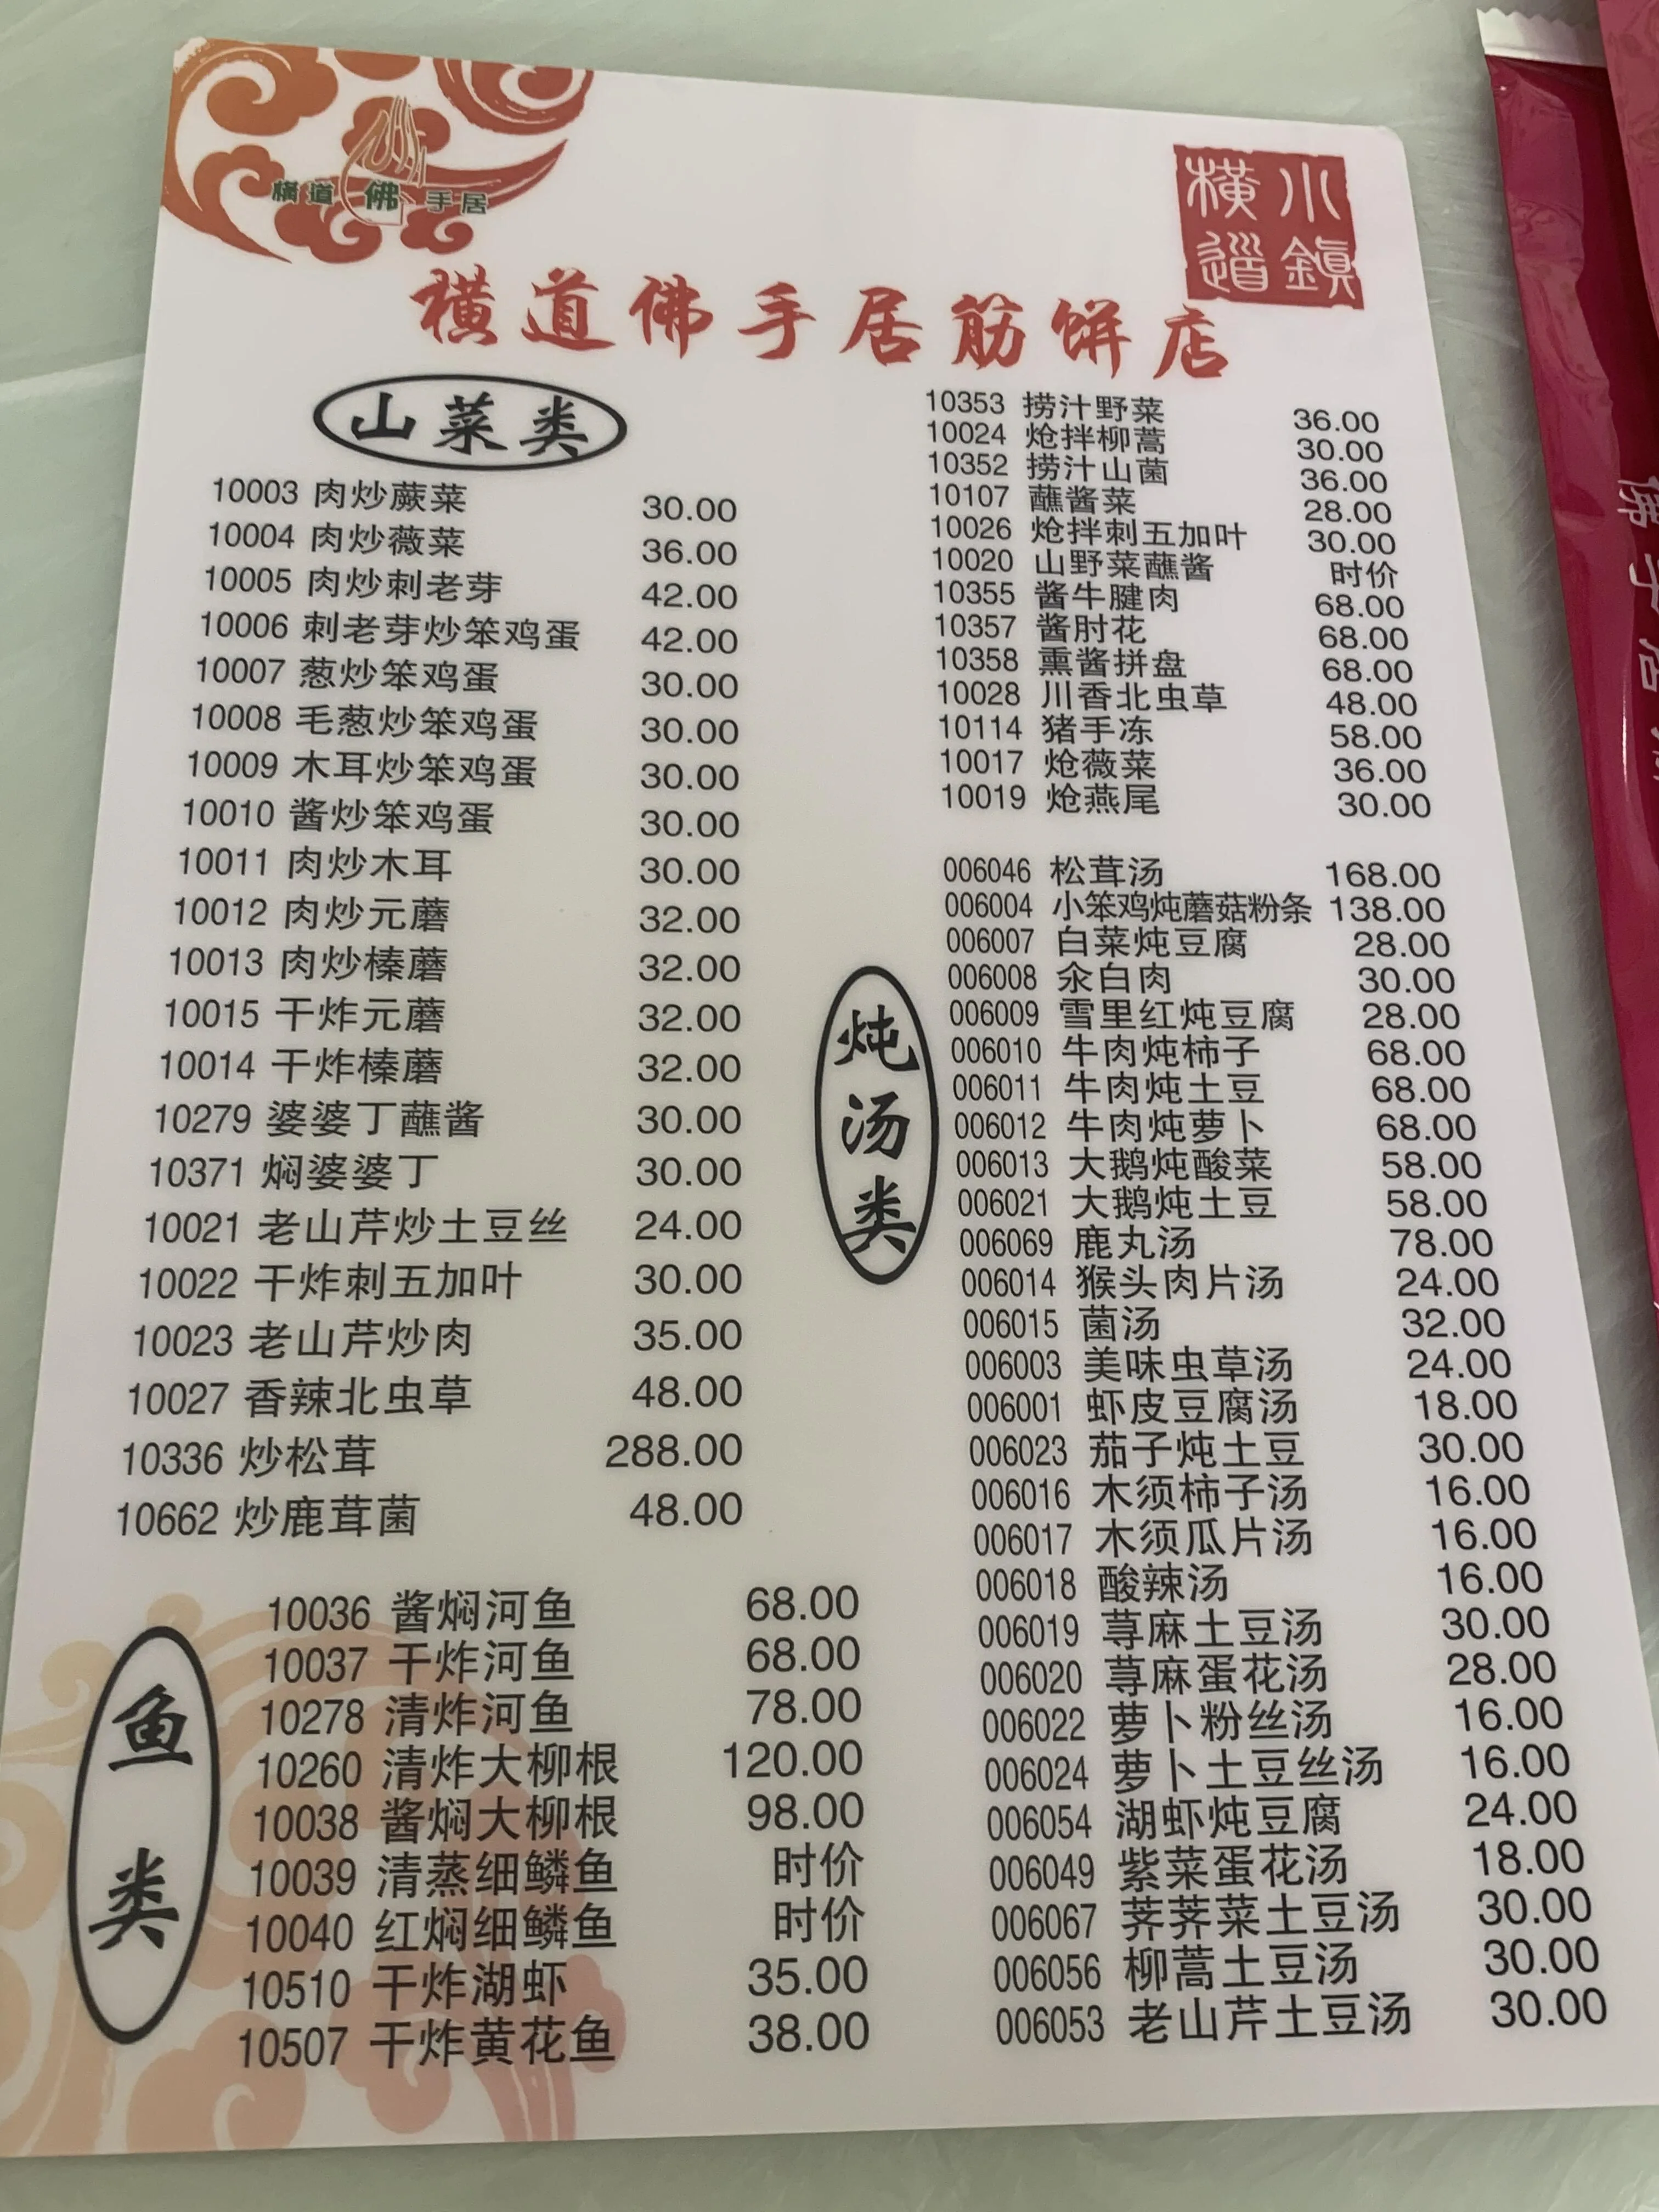 橫道佛手居
小鎮
橫道
橫道佛手居筋饼店
山菜类
10003 肉炒蕨菜 30.00
10004 肉炒薇菜 36.00
10005 肉炒刺老芽 42.00
10006 刺老芽炒笨鸡蛋 42.00
10007 葱炒笨鸡蛋 30.00
10008 毛葱炒笨鸡蛋 30.00
10009 木耳炒笨鸡蛋 30.00
10010 酱炒笨鸡蛋 30.00
10011 肉炒木耳 30.00
10012 肉炒元蘑 32.00
10013 肉炒榛蘑 32.00
10015 干炸元蘑 32.00
10014 干炸榛蘑 32.00
10279 婆婆丁蘸酱 30.00
10371 焖婆婆丁 30.00
10021 老山芹炒土豆丝 24.00
10022 干炸刺五加叶 30.00
10023 老山芹炒肉 35.00
10027 香辣北虫草 48.00
10336 炒松茸 288.00
10662 炒鹿茸菌 48.00
鱼类
10036 酱焖河鱼 68.00
10037 干炸河鱼 68.00
10278 清炸河鱼 78.00
10260 清炸大柳根 120.00
10038 酱焖大柳根 98.00
10039 清蒸细鳞鱼 时价
10040 红焖细鳞鱼 时价
10510 干炸湖虾 35.00
10507 干炸黄花鱼 38.00
10353 捞汁野菜 36.00
10024 炝拌柳蒿 30.00
10352 捞汁山菌 36.00
10107 蘸酱菜 28.00
10026 炝拌刺五加叶 30.00
10020 山野菜蘸酱 时价
10355 酱牛腱肉 68.00
10357 酱肘花 68.00
10358 熏酱拼盘 68.00
10028 川香北虫草 48.00
10114 猪手冻 58.00
10017 炝薇菜 36.00
10019 炝燕尾 30.00
炖汤类
006046 松茸汤 168.00
006004 小笨鸡炖蘑菇粉条 138.00
006007 白菜炖豆腐 28.00
006008 汆白肉 30.00
006009 雪里红炖豆腐 28.00
006010 牛肉炖柿子 68.00
006011 牛肉炖土豆 68.00
006012 牛肉炖萝卜 68.00
006013 大鹅炖酸菜 58.00
006021 大鹅炖土豆 58.00
006069 鹿丸汤 78.00
006014 猴头肉片汤 24.00
006015 菌汤 32.00
006003 美味虫草汤 24.00
006001 虾皮豆腐汤 18.00
006023 茄子炖土豆 30.00
006016 木须柿子汤 16.00
006017 木须瓜片汤 16.00
006018 酸辣汤 16.00
006019 荨麻土豆汤 30.00
006020 荨麻蛋花汤 28.00
006022 萝卜粉丝汤 16.00
006024 萝卜土豆丝汤 16.00
006054 湖虾炖豆腐 24.00
006049 紫菜蛋花汤 18.00
006067 荠荠菜土豆汤 30.00
006056 柳蒿土豆汤 30.00
006053 老山芹土豆汤 30.00
佛手居